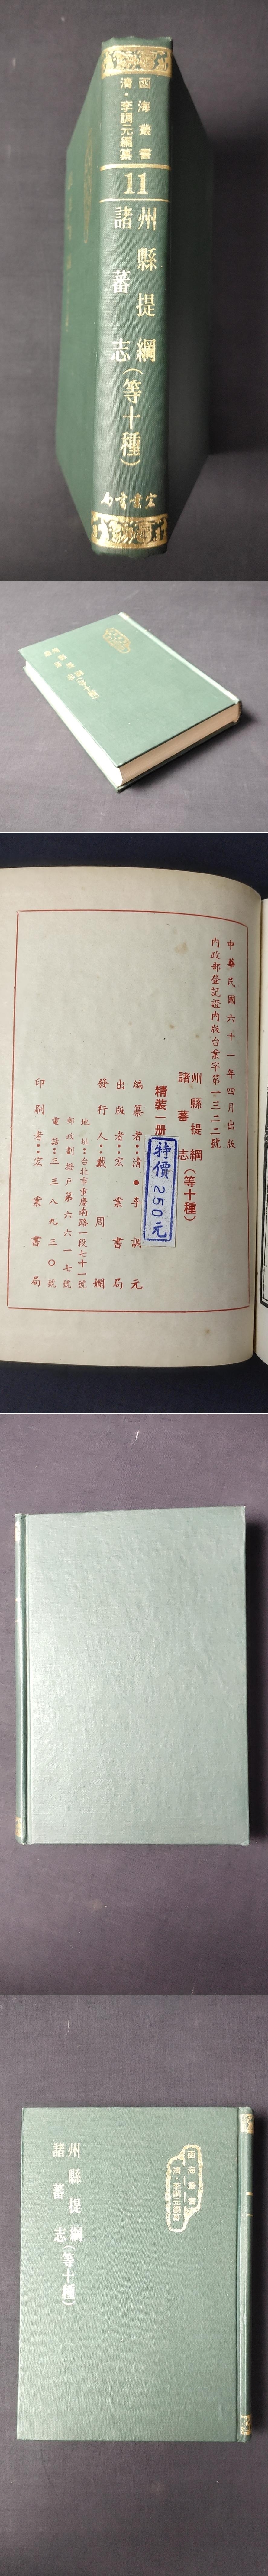 函海叢書
清・李調元編纂
11
州縣提綱
諸蕃志
(等十種)
宏業書局
中華民國六十一年四月出版
內政部登記證內版台業字第一三二二號
州縣提綱
諸蕃志
(等十種)
精裝一册
特價250元
編纂者：清●李調元
出版者：宏業書局
發行人：戴周嫻
地址：台北市重慶南路一段七十一號
郵政劃撥戶第六六一七號
電話：三三八九三〇號
印刷者：宏業書局
函海叢書
清・李調元編纂
州縣提綱
諸蕃志
(等十種)